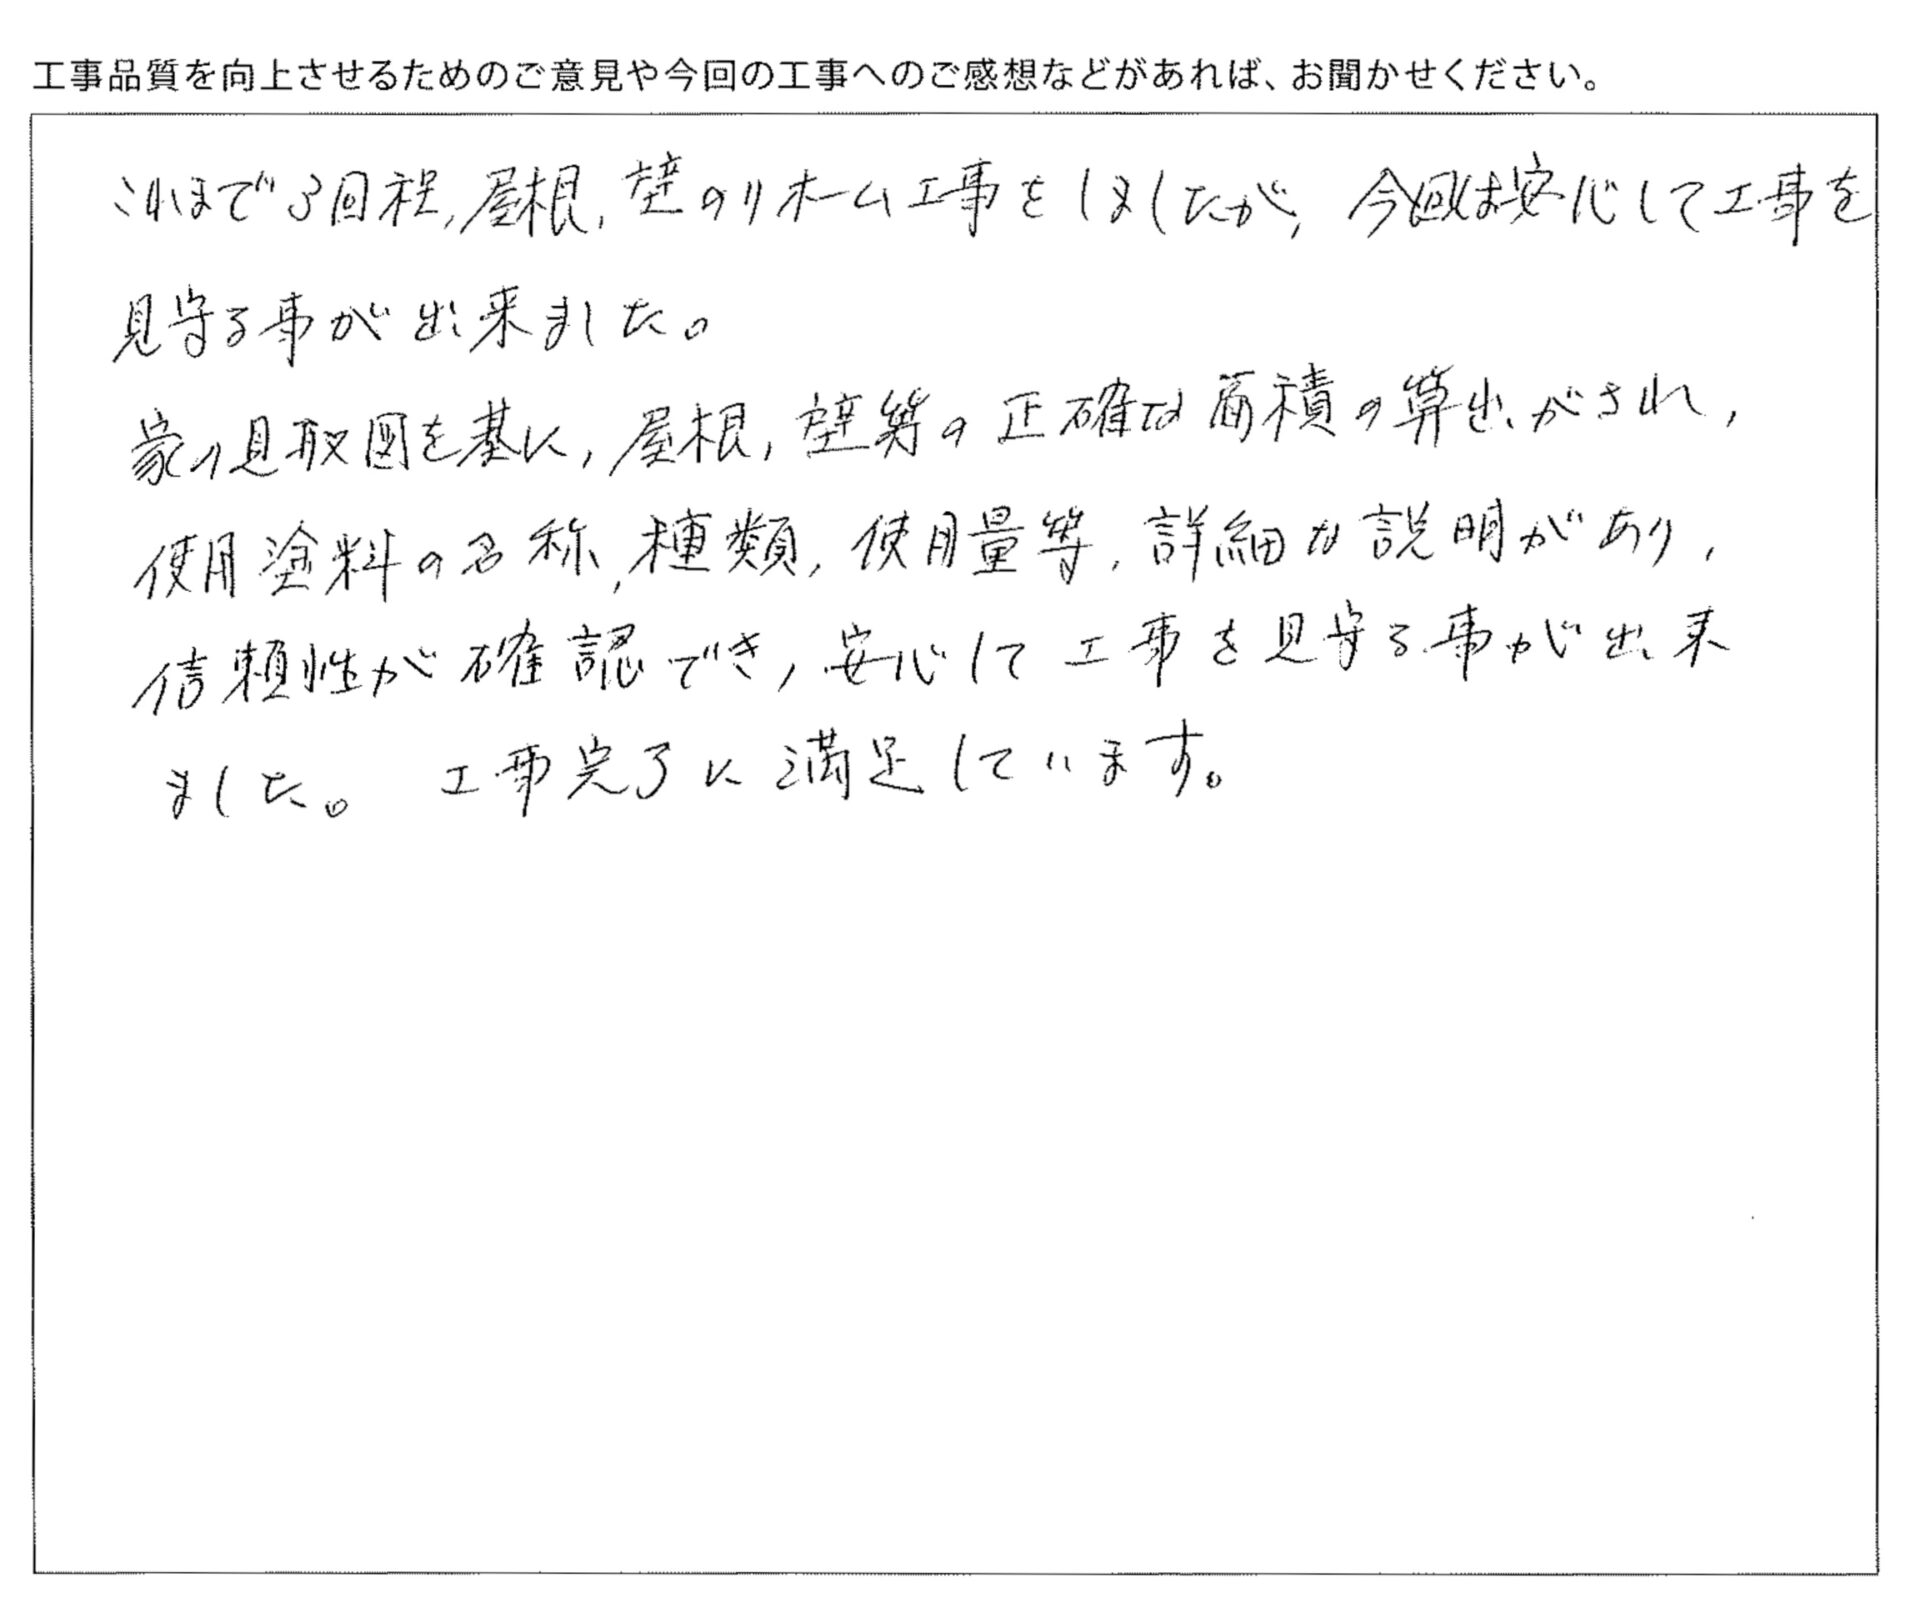 工事品質を向上させるためのご意見や今回の工事へのご感想などがあれば、お聞かせください。
これまで3回程,屋根,壁のリホーム工事をしましたが,今回は安心して工事を
見守る事が出来ました。
家の見取図を基に,屋根,壁等の正確な面積の算出がされ,
使用塗料の名称,種類,使用量等,詳細な説明があり,
信頼性が確認でき,安心して工事を見守る事が出来
ました。 工事完了に満足しています。